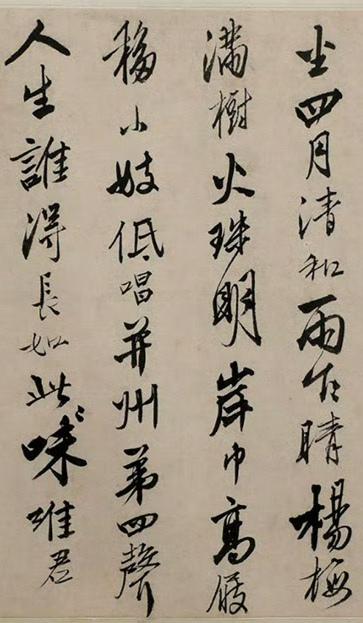 坐四月清和雨乍晴楊梅
滿樹火珠明岸巾高屐
小妓低唱并州第四聲
人生誰得長如此〻味唯君